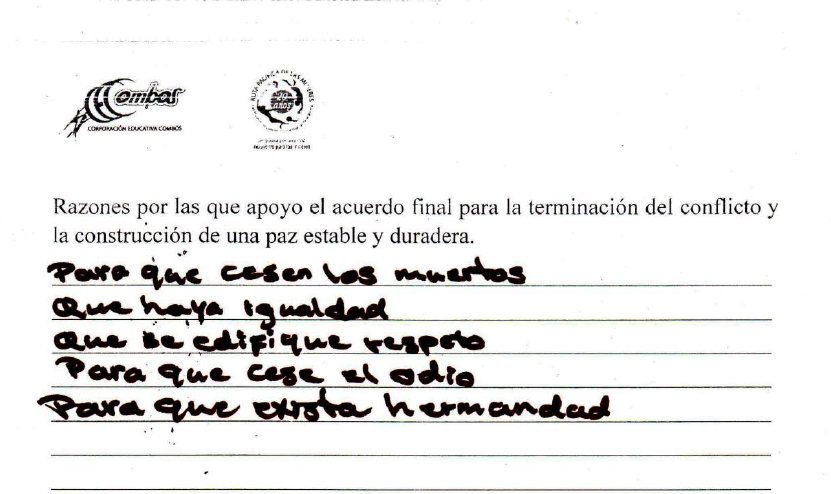 Combos
CORPORACIÓN EDUCATIVA COMBOS
RUTA PACÍFICA DE LAS MUJERES
20
años
Razones por las que apoyo el acuerdo final para la terminación del conflicto y
la construcción de una paz estable y duradera.
Para que cesen los muertos
Que haya igualdad
Que se edifique respeto
Para que cese el odio
Para que exista hermandad